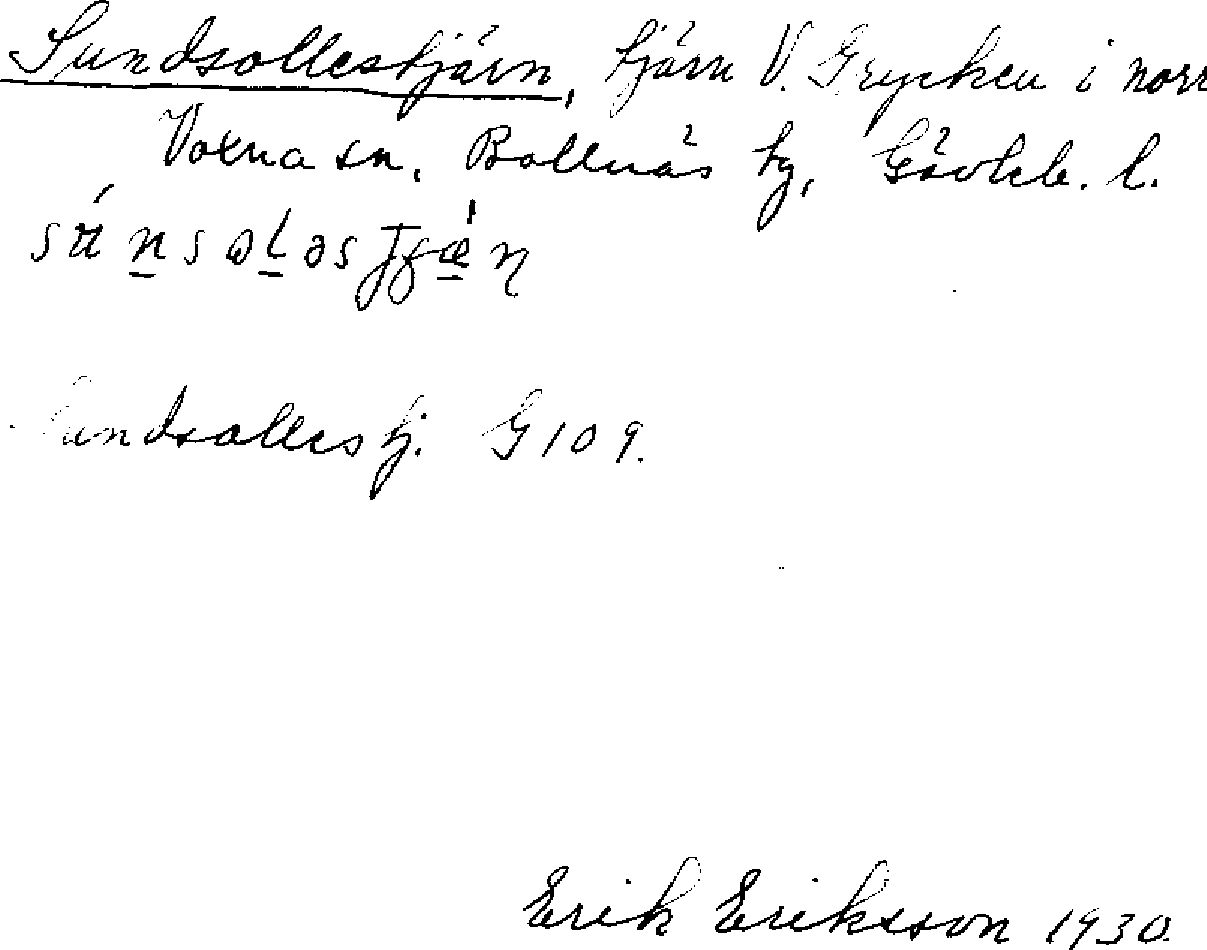 Sundsollestjärn, tjärn V. Grycken i norr
Voxna sn, Bollnäs tg, Gävleb. l.
Sundsollestj. G 109.
Erik Eriksson 1930.